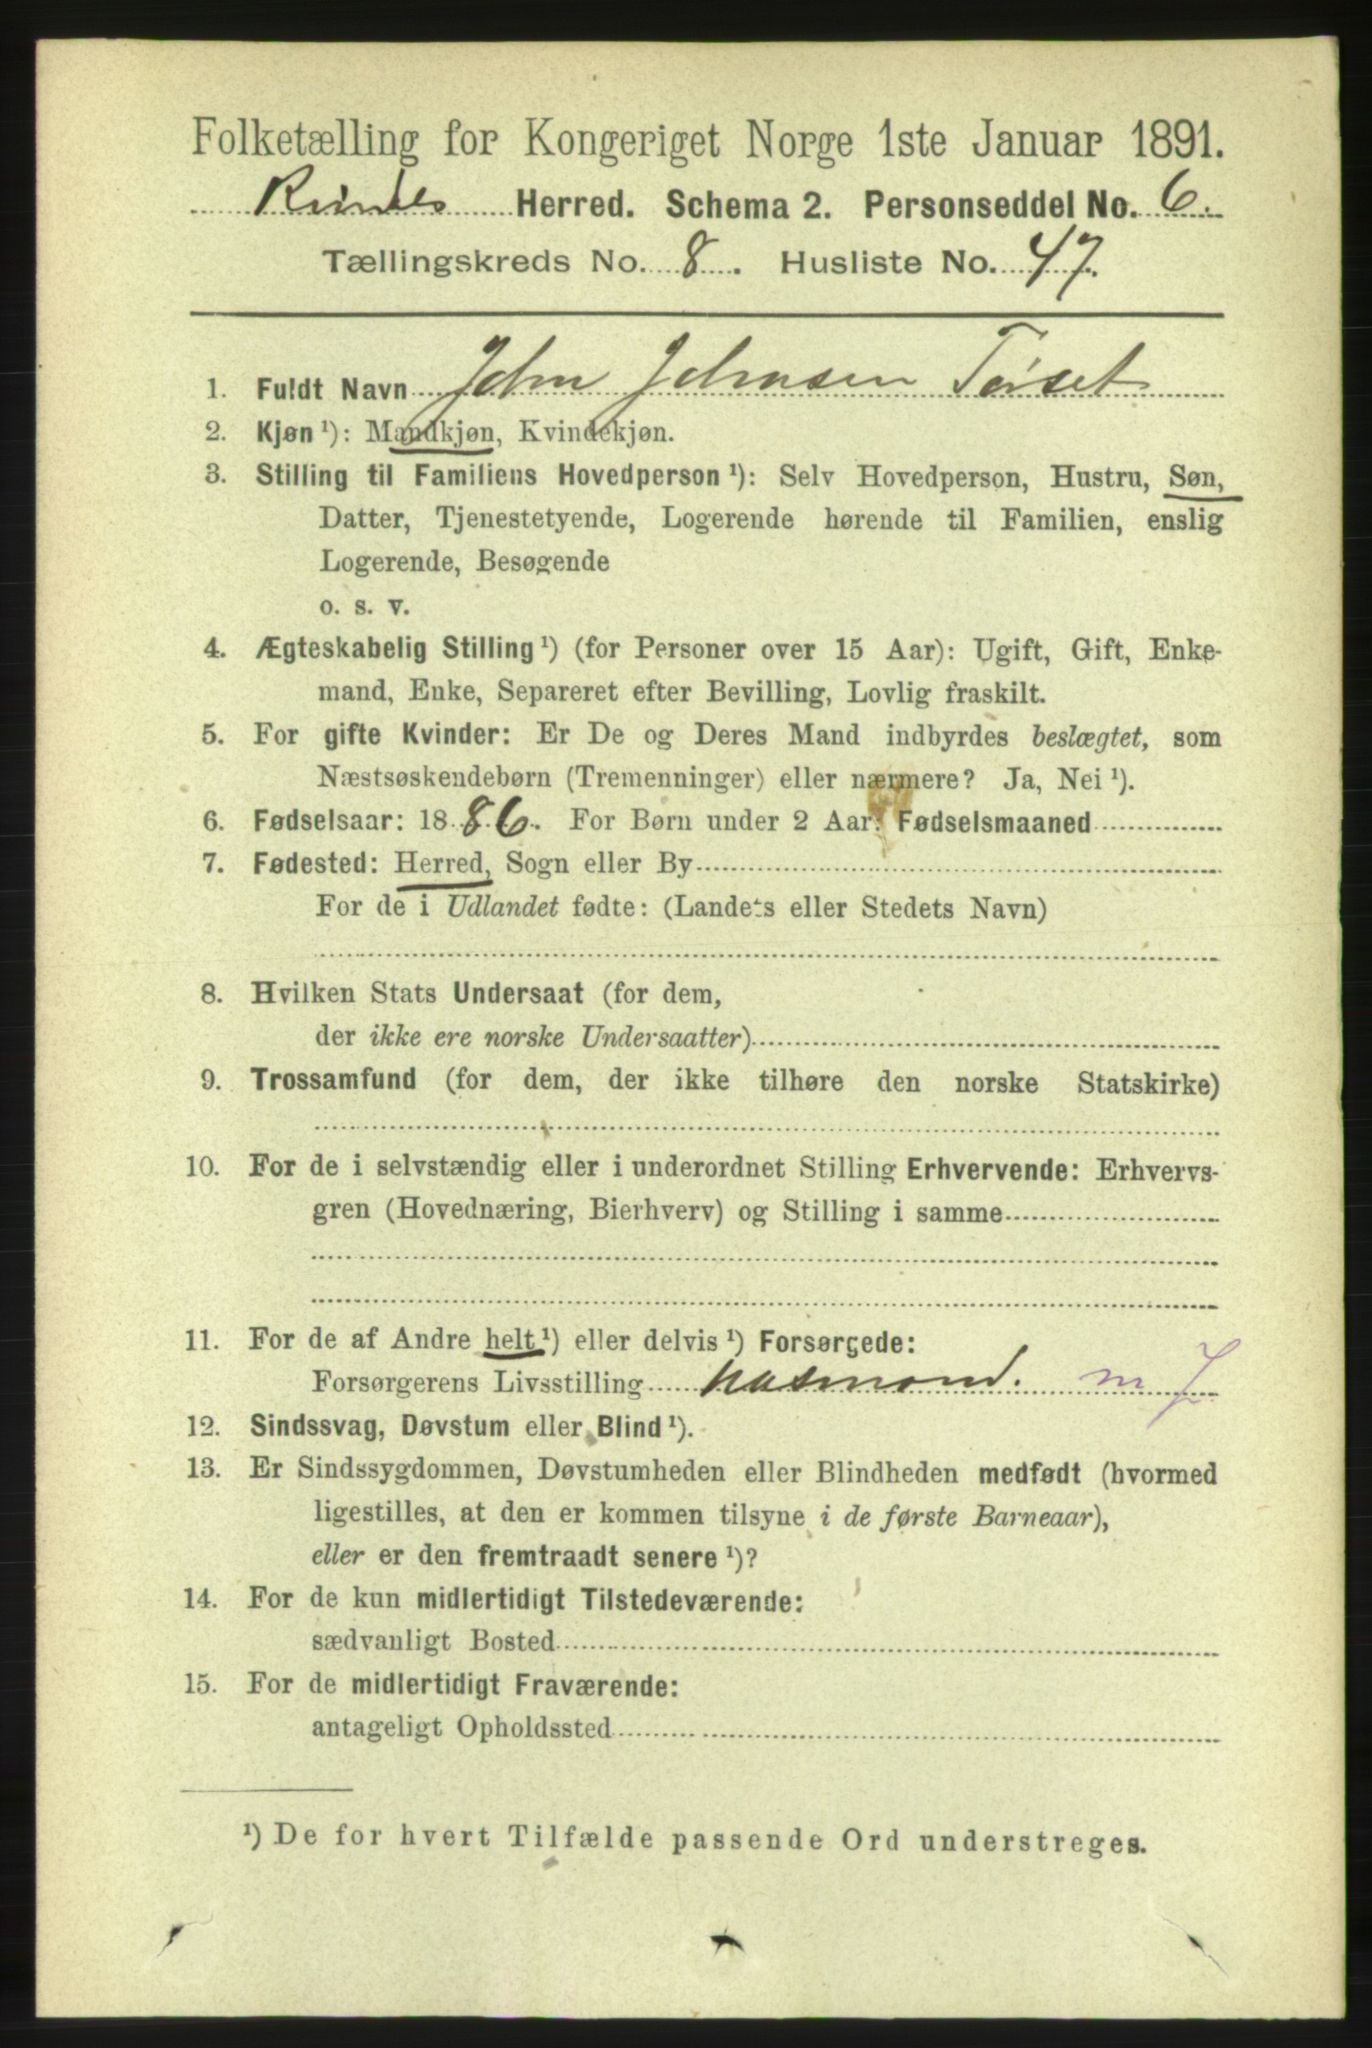 Folketælling for Kongeriget Norge 1ste Januar 1891.
Rindals Herred. Schema 2. Personseddel No. 6.
Tællingskreds No. 8. Husliste No. 47.
1. Fuldt Navn John Johnsen Torset
2. Kjøn ¹): Mandkjøn, Kvindekjøn.
3. Stilling til Familiens Hovedperson ¹): Selv Hovedperson, Hustru, Søn,
Datter, Tjenestetyende, Logerende hørende til Familien, enslig
Logerende, Besøgende
o. s. v.
4. Ægteskabelig Stilling ¹) (for Personer over 15 Aar): Ugift, Gift, Enke-
mand, Enke, Separeret efter Bevilling, Lovlig fraskilt.
5. For gifte Kvinder: Er De og Deres Mand indbyrdes beslægtet, som
Næstsøskendebørn (Tremenninger) eller nærmere? Ja, Nei ¹).
6. Fødselsaar: 1886. For Børn under 2 Aar: Fødselsmaaned
7. Fødested: Herred, Sogn eller By
For de i Udlandet fødte: (Landets eller Stedets Navn)
8. Hvilken Stats Undersaat (for dem,
der ikke ere norske Undersaatter)
9. Trossamfund (for dem, der ikke tilhøre den norske Statskirke)
10. For de i selvstændig eller i underordnet Stilling Erhvervende: Erhvervs-
gren (Hovednæring, Bierhverv) og Stilling i samme
11. For de af Andre helt ¹) eller delvis ¹) Forsørgede:
Forsørgerens Livsstilling Husmand. m J
12. Sindssvag, Døvstum eller Blind ¹).
13. Er Sindssygdommen, Døvstumheden eller Blindheden medfødt (hvormed
ligestilles, at den er kommen tilsyne i de første Barneaar),
eller er den fremtraadt senere ¹)?
14. For de kun midlertidigt Tilstedeværende:
sædvanligt Bosted
15. For de midlertidigt Fraværende:
antageligt Opholdssted
¹) De for hvert Tilfælde passende Ord understreges.